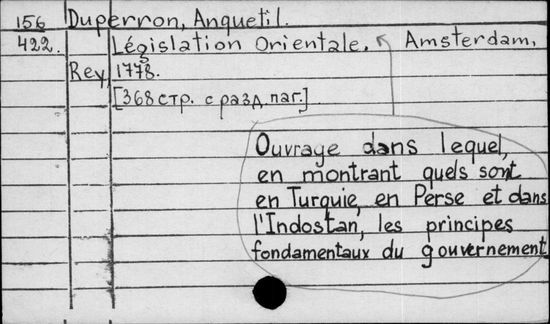 156 Duperron, Anquetil.
422. Législation Orientale. Amsterdam,
Rey, 1778.
[368 стр. с разд. паг.]
Ouvrage dans lequel,
en montrant quels sont
en Turquie, en Perse et dans
l'Indostan, les principes
fondamentaux du gouvernement